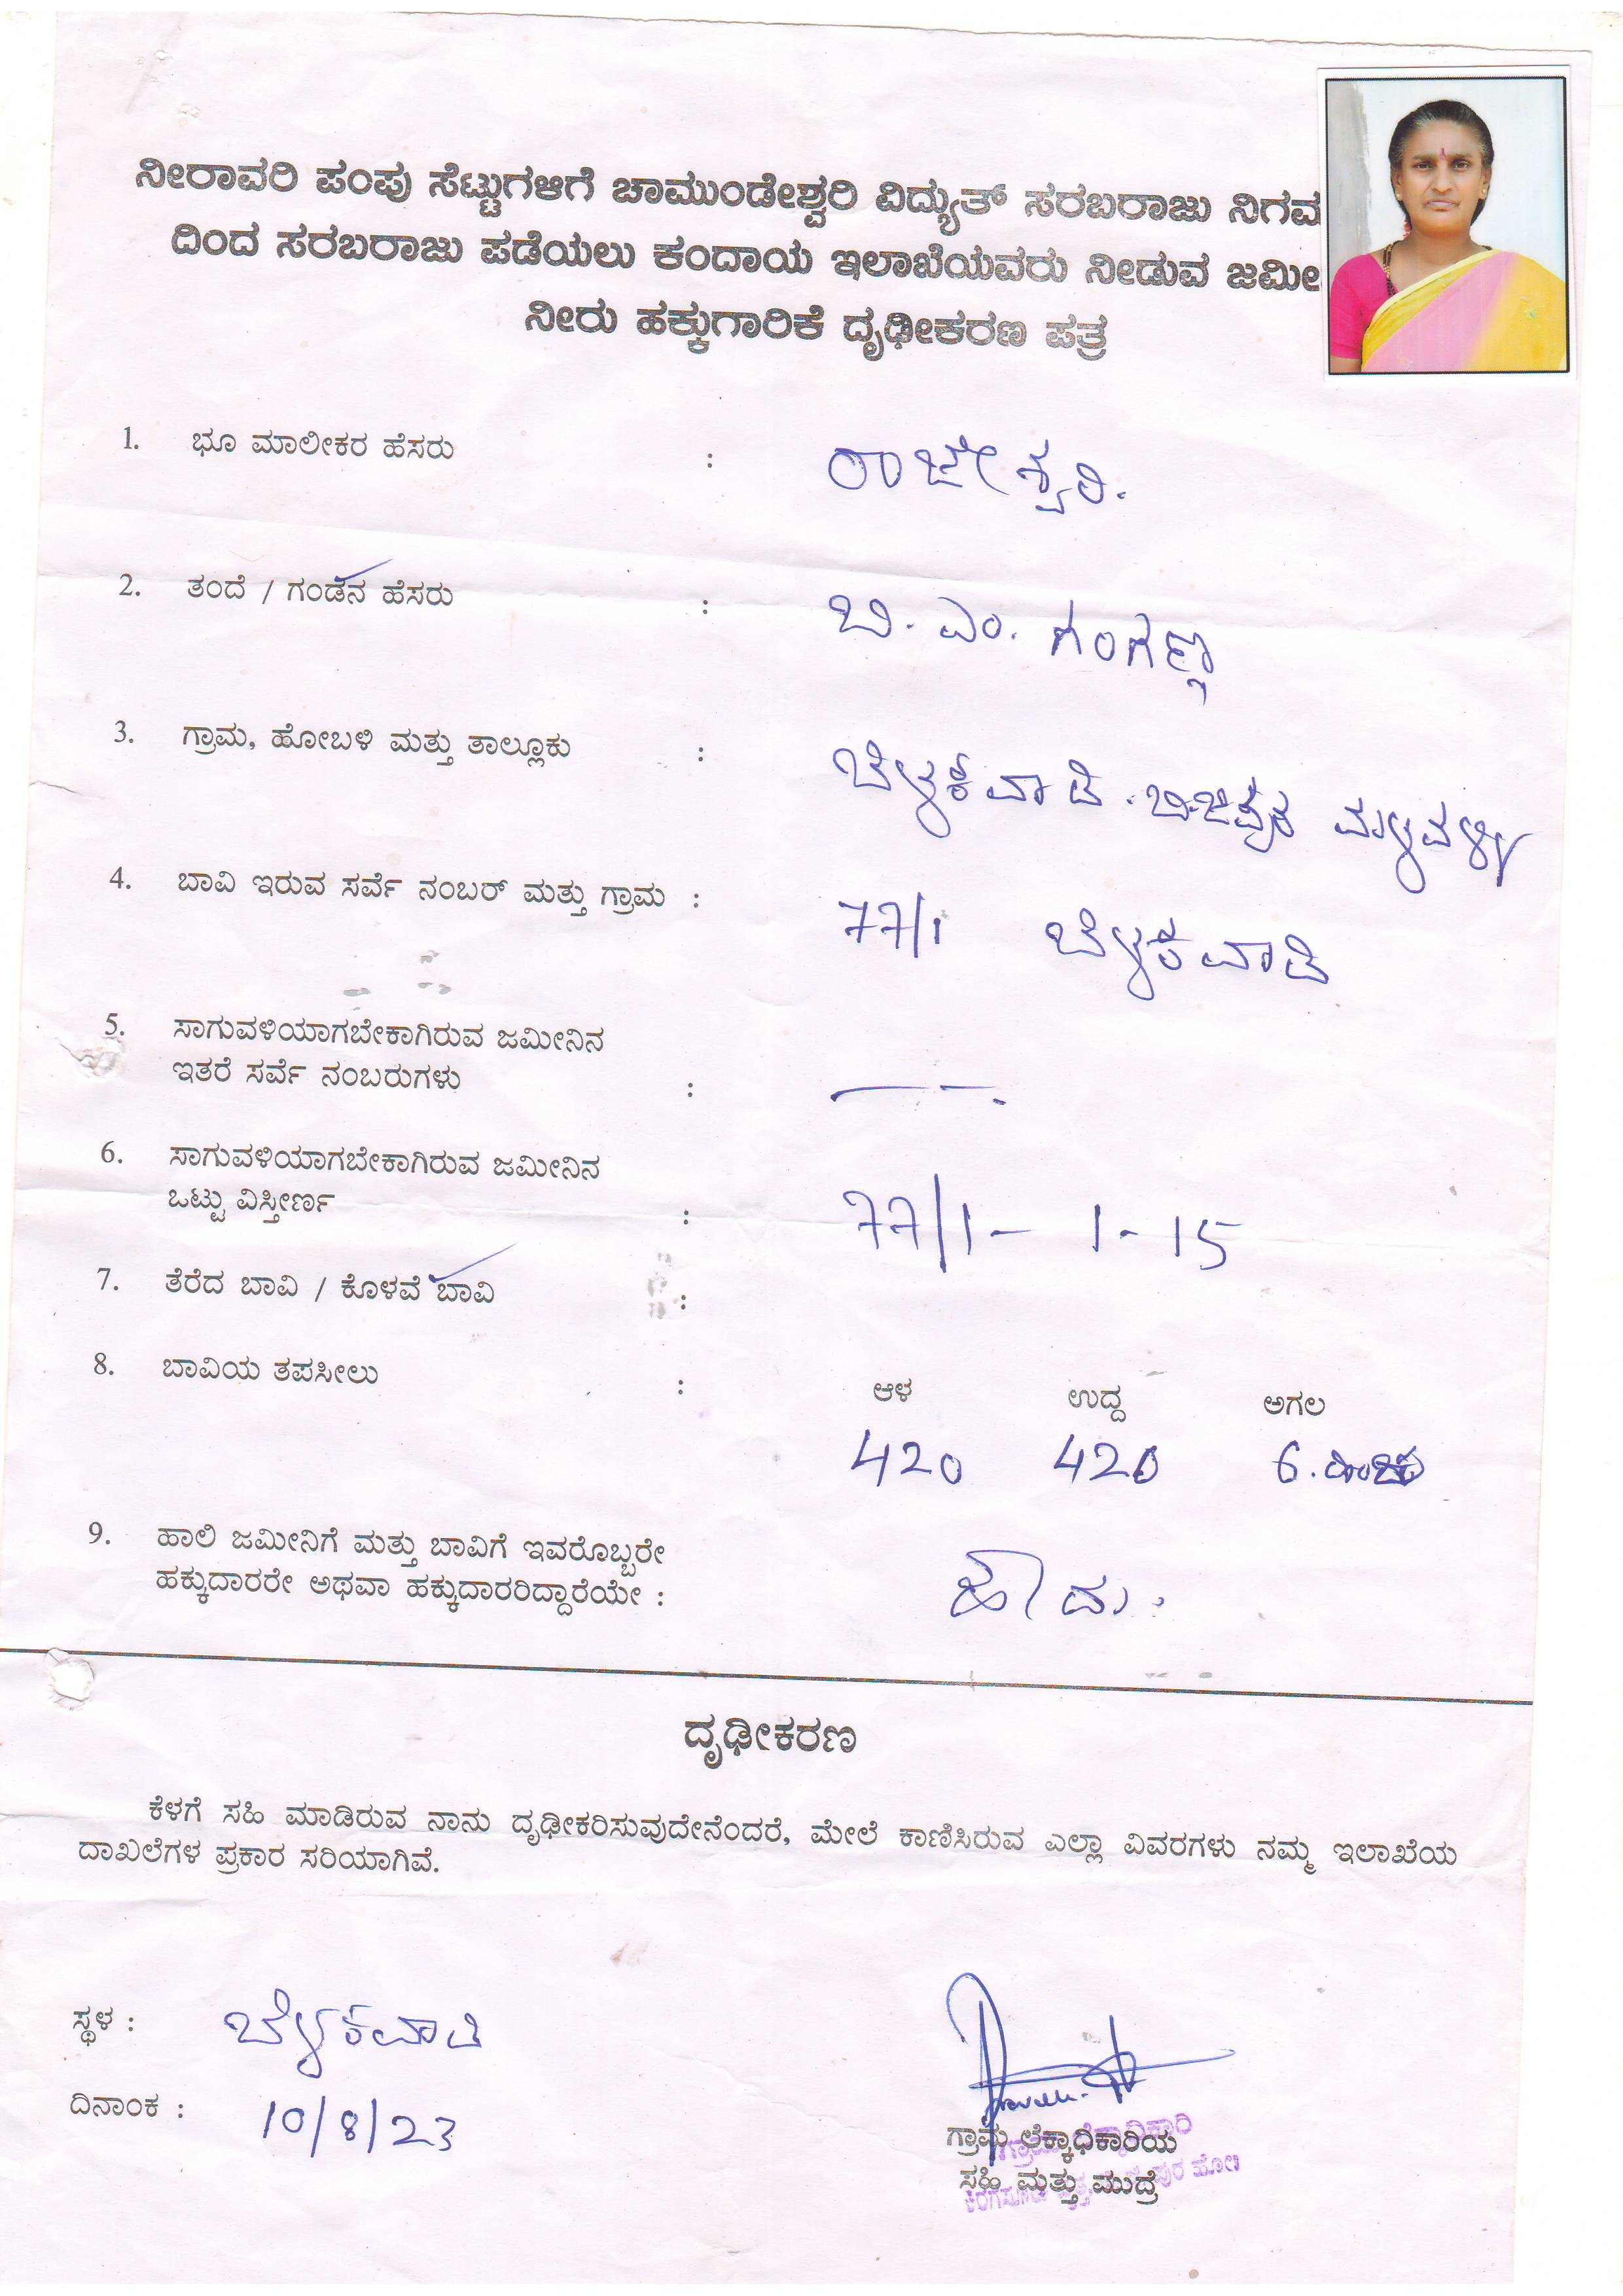 ನೀರಾವರಿ ಪಂಪು ಸೆಟ್ಟುಗಳಿಗೆ ಚಾಮುಂಡೇಶ್ವರಿ ವಿದ್ಯುತ್ ಸರಬರಾಜು ನಿಗಮ
ದಿಂದ ಸರಬರಾಜು ಪಡೆಯಲು ಕಂದಾಯ ಇಲಾಖೆಯವರು ನೀಡುವ ಜಮೀ
ನೀರು ಹಕ್ಕುಗಾರಿಕೆ ದೃಢೀಕರಣ ಪತ್ರ
1. ಭೂ ಮಾಲೀಕರ ಹೆಸರು : ರಾಜೇಶ್ವರಿ.
2. ತಂದೆ / ಗಂಡನ ಹೆಸರು : ಬಿ. ಎಂ. ಗಂಗಣ್ಣ
3. ಗ್ರಾಮ, ಹೋಬಳಿ ಮತ್ತು ತಾಲ್ಲೂಕು : ಬೆಳಕವಾಡಿ. ಬಿ.ಜಿಪುರ ಮಳವಳ್ಳಿ
4. ಬಾವಿ ಇರುವ ಸರ್ವೆ ನಂಬರ್ ಮತ್ತು ಗ್ರಾಮ : 77/1 ಬೆಳಕವಾಡಿ
5. ಸಾಗುವಳಿಯಾಗಬೇಕಾಗಿರುವ ಜಮೀನಿನ
ಇತರೆ ಸರ್ವೆ ನಂಬರುಗಳು : — —.
6. ಸಾಗುವಳಿಯಾಗಬೇಕಾಗಿರುವ ಜಮೀನಿನ
ಒಟ್ಟು ವಿಸ್ತೀರ್ಣ : 77/1 - 1-15
7. ತೆರೆದ ಬಾವಿ / ಕೊಳವೆ ಬಾವಿ :
8. ಬಾವಿಯ ತಪಸೀಲು : ಆಳ ಉದ್ದ ಅಗಲ
420 420 6. ಇಂಚು
9. ಹಾಲಿ ಜಮೀನಿಗೆ ಮತ್ತು ಬಾವಿಗೆ ಇವರೊಬ್ಬರೇ
ಹಕ್ಕುದಾರರೇ ಅಥವಾ ಹಕ್ಕುದಾರರಿದ್ದಾರೆಯೇ : ಹೌದು.
ದೃಢೀಕರಣ
ಕೆಳಗೆ ಸಹಿ ಮಾಡಿರುವ ನಾನು ದೃಢೀಕರಿಸುವುದೇನೆಂದರೆ, ಮೇಲೆ ಕಾಣಿಸಿರುವ ಎಲ್ಲಾ ವಿವರಗಳು ನಮ್ಮ ಇಲಾಖೆಯ
ದಾಖಲೆಗಳ ಪ್ರಕಾರ ಸರಿಯಾಗಿವೆ.
ಸ್ಥಳ : ಬೆಳಕವಾಡಿ
ದಿನಾಂಕ : 10/8/23
ಗ್ರಾಮ ಲೆಕ್ಕಾಧಿಕಾರಿಯ
ಸಹಿ ಮತ್ತು ಮುದ್ರೆ